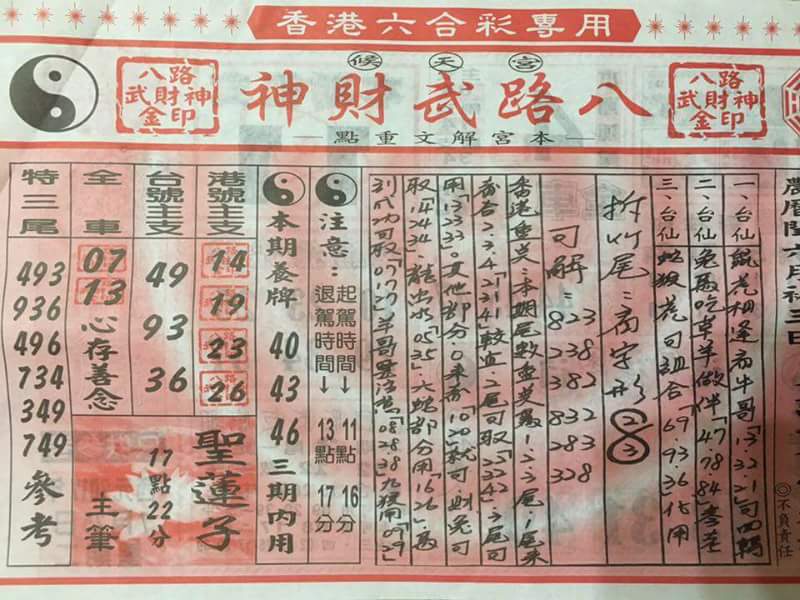 香港六合彩專用
天候宮
八路武財神
八路武財神金印
八路武財神金印
本宮解文重點
農曆閏六月初三日
◎不負責任
一、台仙 鼠花相逢有牛哥「13.32.21」可四躺
二、台仙 兔馬吃草羊做伴「47.78.84
三、台仙 花可組合「69.93.36」代用
拆竹尾:商字形 8 2 3
可解:
823
238
382
832
283
328
香港重點:本期尾數重點 1.2.3尾
2.3.4 「2314」較宜.2尾可取「2342」.3尾可
用「132333」其他部分0來看「1020」就可.財兔可
取「142434」龍出水「0535」.六蛇部分用「1626」.馬
可取「071727」羊哥「082838」九猴用「0929」
注意:
起駕時間→11點16分
退駕時間→13點17分
本期養牌
40
43
46
三期內用
港號主支
14
19
23
26
台號主支
49
93
36
全車
07
13
心存善念
特三尾
493
936
496
734
349
749
參考
聖蓮子
17點22分
主筆